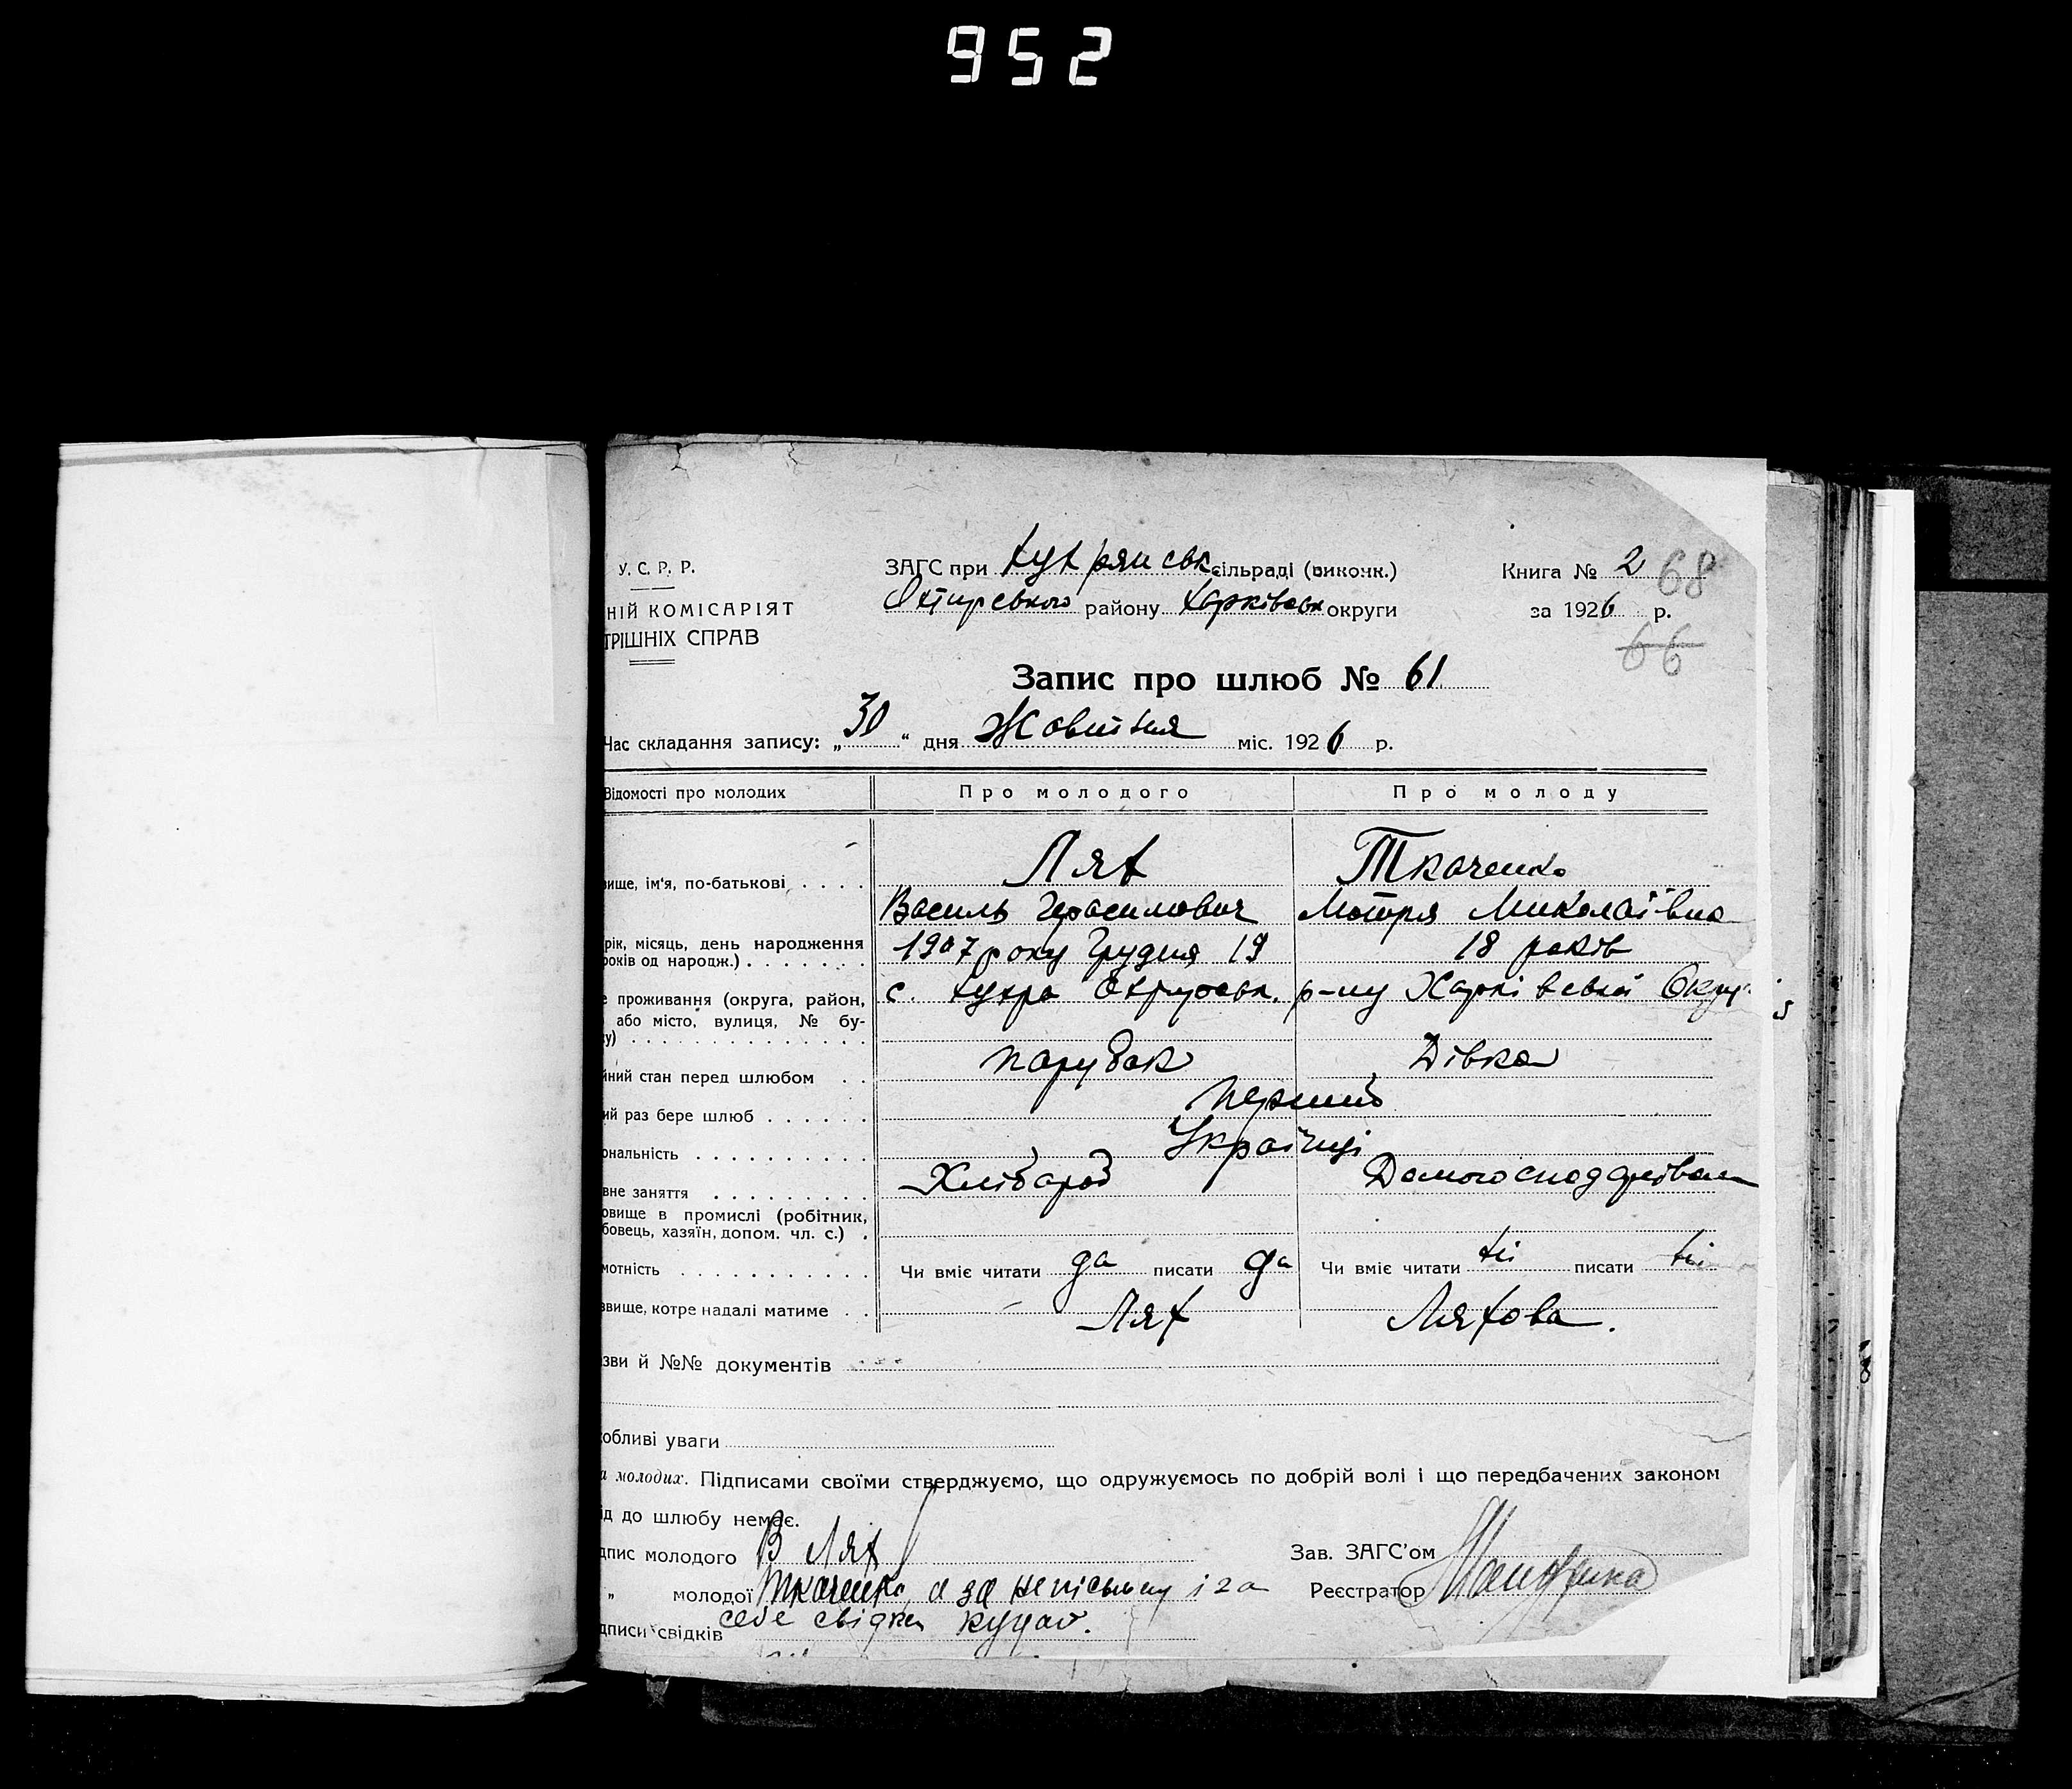 952
У. С. Р. Р.
ЗАГС при Хухрянськ. сільраді (викочк.)
Книга № 2 68
НІЙ КОМІСАРІЯТ
Охтирського району Харківськ округи
за 1926 р.
ТРІШНІХ СПРАВ
66
Запис про шлюб № 61
Час складання запису: „30“ дня Жовтня міс. 1926 р.
Відомості про молодих Про молодого Про молоду
Лях Ткаченко
вище, ім'я, по-батькові . . . .
Василь Герасимович Мотря Миколаївна
рік, місяць, день народження 1907 року Грудня 19 18 років
років од народж.) . . . . . . .
е проживання (округа, район, с. Хухра Охтирськ. р-ну Харківської Округ
або місто, вулиця, № бу-
у) . . . . . . . . . . . . . .
парубок Дівка
йний стан перед шлюбом . .
ий раз бере шлюб . . . . . . Перший
ональність . . . . . . . . . . Українці
вне заняття . . . . . . . . . Хлібороб
овище в промислі (робітник,
бовець, хазяїн, допом. чл. с.) .
мотність . . . . . . . . . . . Чи вміє читати да писати да Чи вміє читати ні писати ні
звище, котре надалі матиме . . Лях Ляхова.
зви й №№ документів
обливі уваги
а молодих. Підписами своїми стверджуємо, що одружуємось по добрій волі і що передбачених законом
ід до шлюбу немає.
дпис молодого В Лях Зав. ЗАГС'ом
„ молодої Ткаченко, а за неписьмену і за Реєстратор
себе свідки
дписи свідків